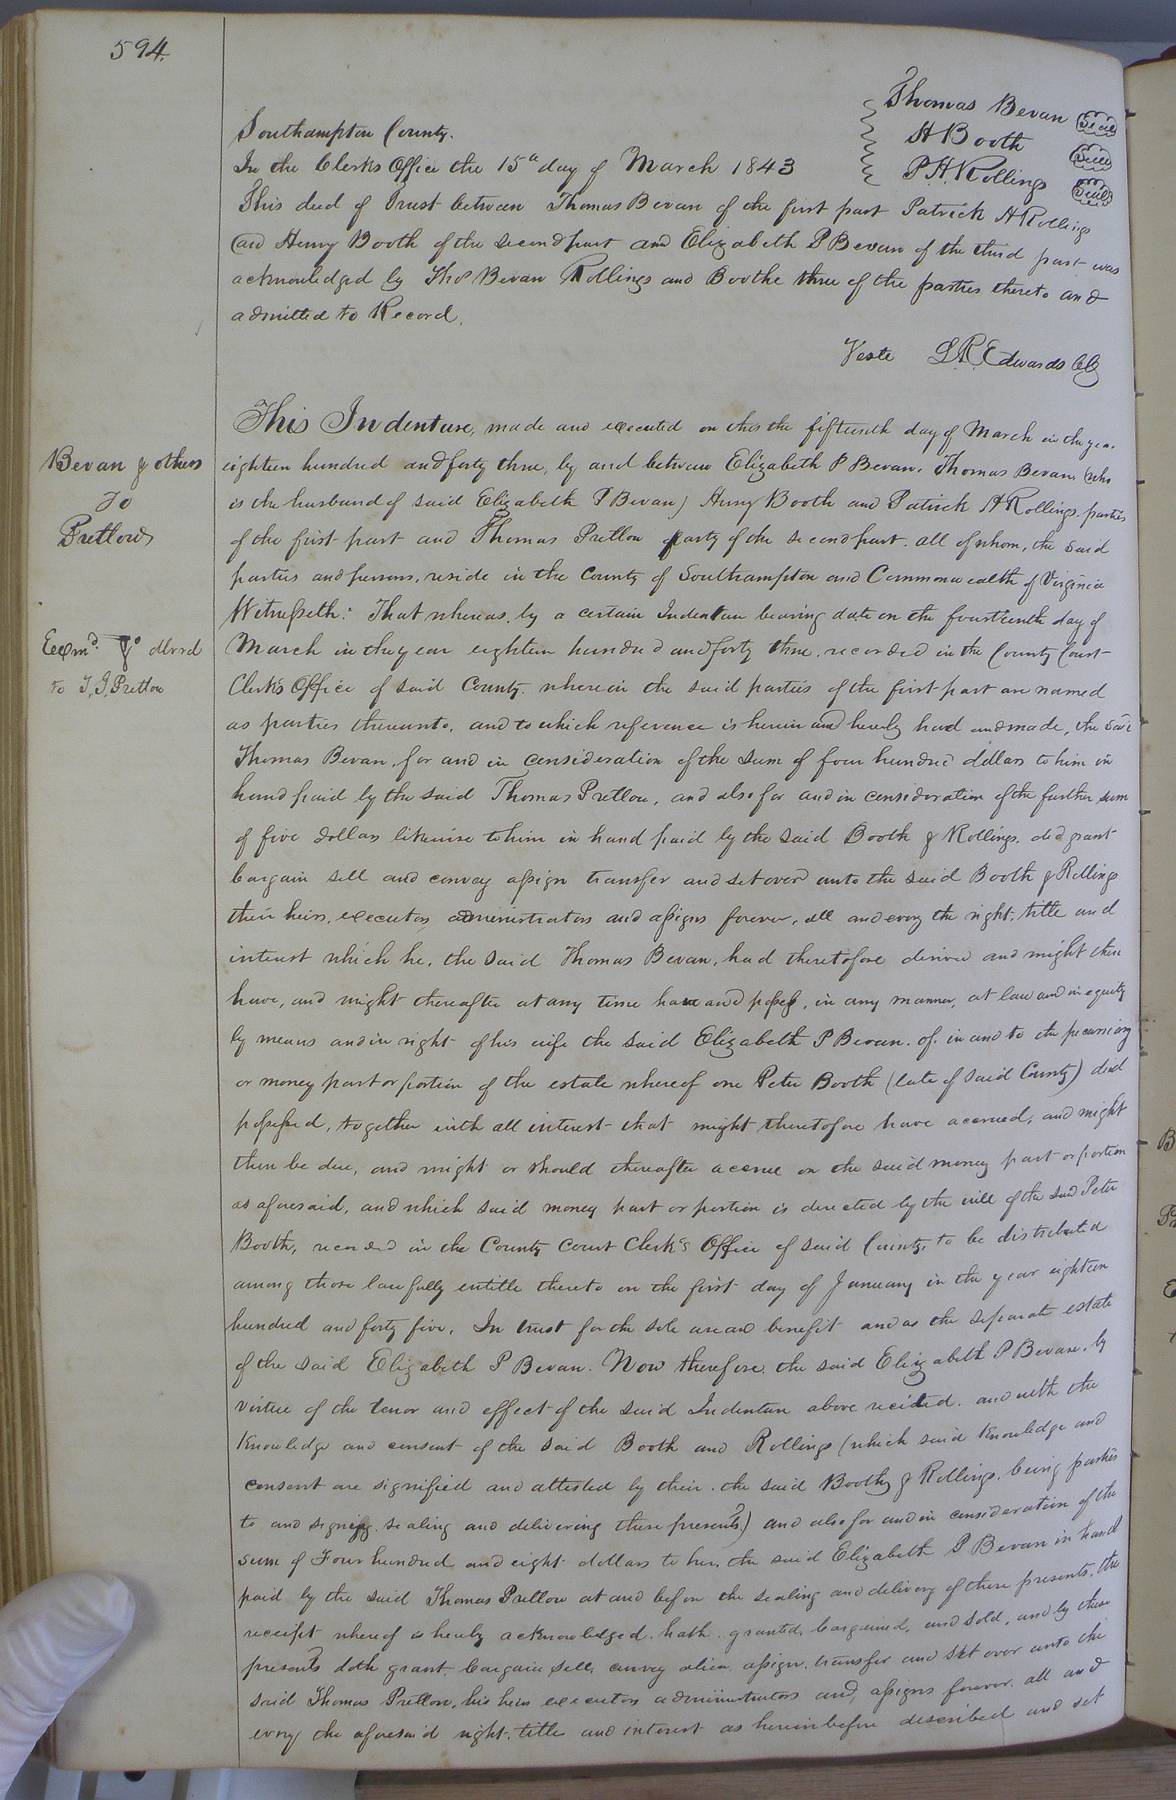 594.
Thomas Bevan Seal
H Booth Seal
P. H. Rollings Seal
Southampton County.
In the Clerks Office the 15th day of March 1843
This deed of Trust between Thomas Bevan of the first part Patrick H Rollings
and Henry Booth of the second part and Elizabeth P Bevan of the third part was
acknowledged by Thos Bevan Rollings and Boothe three of the parties thereto and
admitted to Record.
Teste L. R. Edwards CC
Bevan & others
To
Pretlow
Exmd. & dlvrd
to T. J. Pretlow
This Indenture, made and executed on this the fifteenth day of March in the year
eighteen hundred and forty three, by and between Elizabeth P Bevan. Thomas Bevan, (who
is the husband of said Elizabeth P Bevan) Henry Booth and Patrick H Rollings. parties
of the first part and Thomas Pretlow party of the second part. all of whom, the said
parties and persons, reside in the County of Southampton and Commonwealth of Virginia
Witnesseth: That whereas, by a certain Indenture bearing date on the fourteenth day of
March in the year eighteen hundred and forty three. recorded in the County Court
Clerk's Office of said County. wherein the said parties of the first part are named
as parties thereunto, and to which reference is herein and hereby had and made, the said
Thomas Bevan, for and in consideration of the sum of four hundred dollars to him in
hand paid by the said Thomas Pretlow, and also for and in consideration of the further sum
of five dollars likewise to him in hand paid by the said Booth & Rollings. did grant
bargain sell and convey assign transfer and set over unto the said Booth & Rollings
their heirs, executors, administrators and assigns forever, all and every the right, title and
interest which he, the said Thomas Bevan, had theretofore derived and might then
have, and might thereafter at any time have and possess, in any manner, at law and in equity
by means and in right of his wife the said Elizabeth P Bevan. of, in and to the pecuniary
or money part or portion of the estate whereof one Peter Booth (late of said County) died
possessed, together with all interest that might theretofore have accrued, and might
then be due, and might or should thereafter accrue on the said money part or portion
as aforesaid, and which said money part or portion is directed by the will of the said Peter
Booth, recorded in the County Court Clerk's Office of said County, to be distributed
among those lawfully entitle thereto on the first day of January in the year eighteen
hundred and forty five, In trust for the sole use and benefit and as the separate estate
of the said Elizabeth P Bevan. Now therefore, the said Elizabeth P Bevan, by
virtue of the tenor and effect of the said Indenture above recited. and with the
knowledge and consent of the said Booth and Rollings (which said knowledge and
consent are signified and attested by their. the said Booth & Rollings, being parties
to and signing. sealing and delivering these presents) and also for and in consideration of the
sum of Four hundred and eight dollars to her, the said Elizabeth P Bevan in hand
paid by the said Thomas Pretlow at and before the sealing and delivery of these presents, the
receipt whereof is hereby acknowledged. hath. granted, bargained, and sold, and by these
presents doth grant, bargain sell, convey alien, assign, transfer and set over unto the
said Thomas Pretlow, his heirs executors administrators and, assigns forever all and
every the aforesaid right, title and interest as herein before described and set